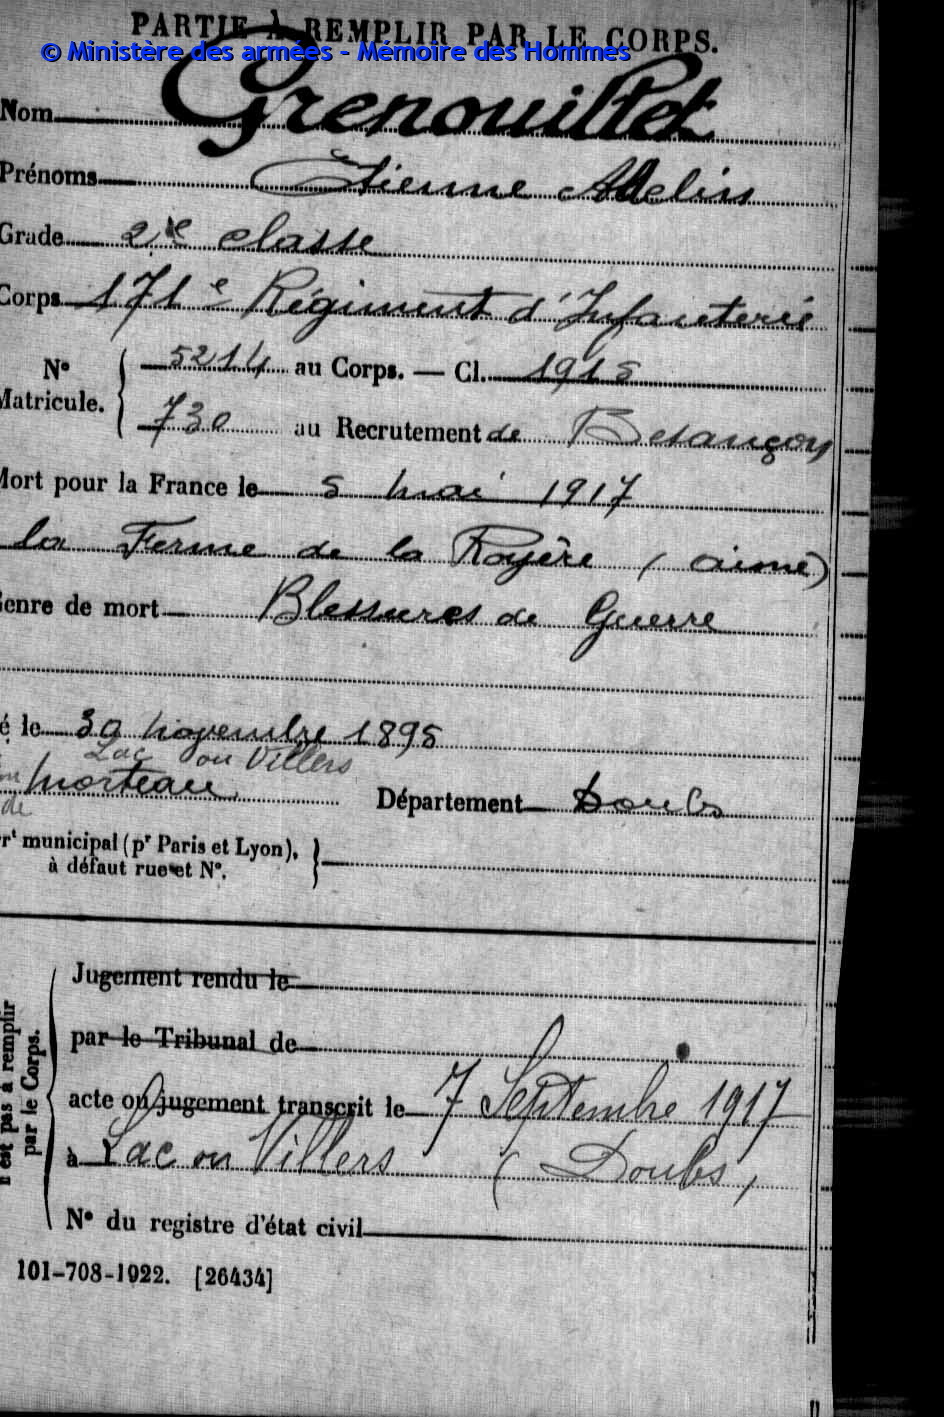 PARTIE À REMPLIR PAR LE CORPS.
© Ministère des armées - Mémoire des Hommes
Nom Grenouillet
Prénoms Etienne Adelin
Grade 2e classe
Corps 171e Régiment d'Infanterie
No Matricule. { 5214 au Corps. — Cl. 1915
730 au Recrutement de Besançon
Mort pour la France le 5 mai 1917
la Ferme de la Royère (aisne)
Genre de mort Blessures de Guerre
é le 30 novembre 1895
Lac ou Villers
Morteau Département Doubs
de
rt municipal (pr Paris et Lyon), à défaut rue et No.
Jugement rendu le
par le Tribunal de
acte ou jugement transcrit le 7 Septembre 1917
à Lac ou Villers (Doubs)
No du registre d'état civil
n'est pas à remplir par le Corps.
101-708-1922. [26434]